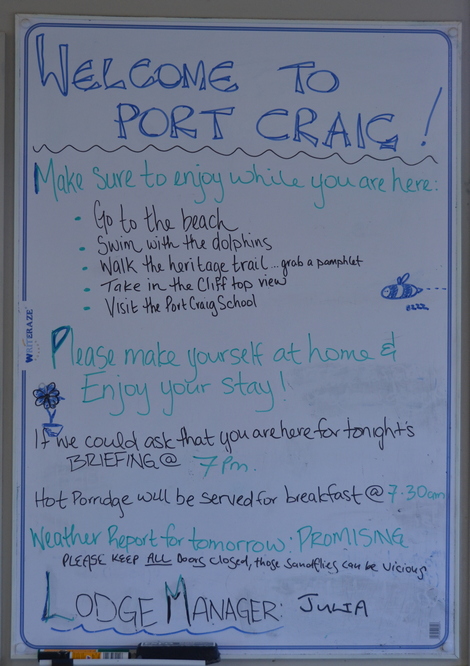 WELCOME TO
PORT CRAIG!
Make Sure to enjoy while you are here:
• Go to the beach
• Swim with the dolphins
• Walk the heritage trail...grab a pamphlet
• Take in the Cliff top view
• Visit the Port Craig School
zzzz
WRITERAZE
Please make yourself at home &
Enjoy your stay!
If we could ask that you are here for tonight's
BRIEFING @ 7pm.
Hot Porridge will be served for breakfast @ 7.30am
Weather Report for tomorrow: PROMISING
PLEASE KEEP ALL Doors closed, those Sandflies can be vicious.
LODGE MANAGER: JULIA